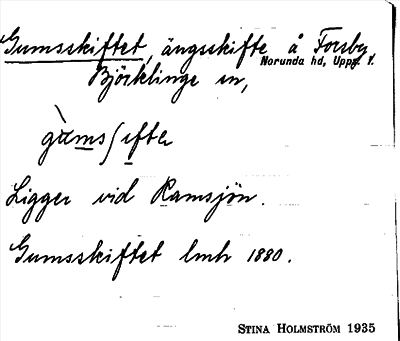 Gumsskiftet, ängsskifte å Forsby,
Norunda hd, Uppl.
Björklinge sn,
Ligger vid Ramsjön.
Gumsskiftet lmh 1880.
STINA HOLMSTRÖM 1935